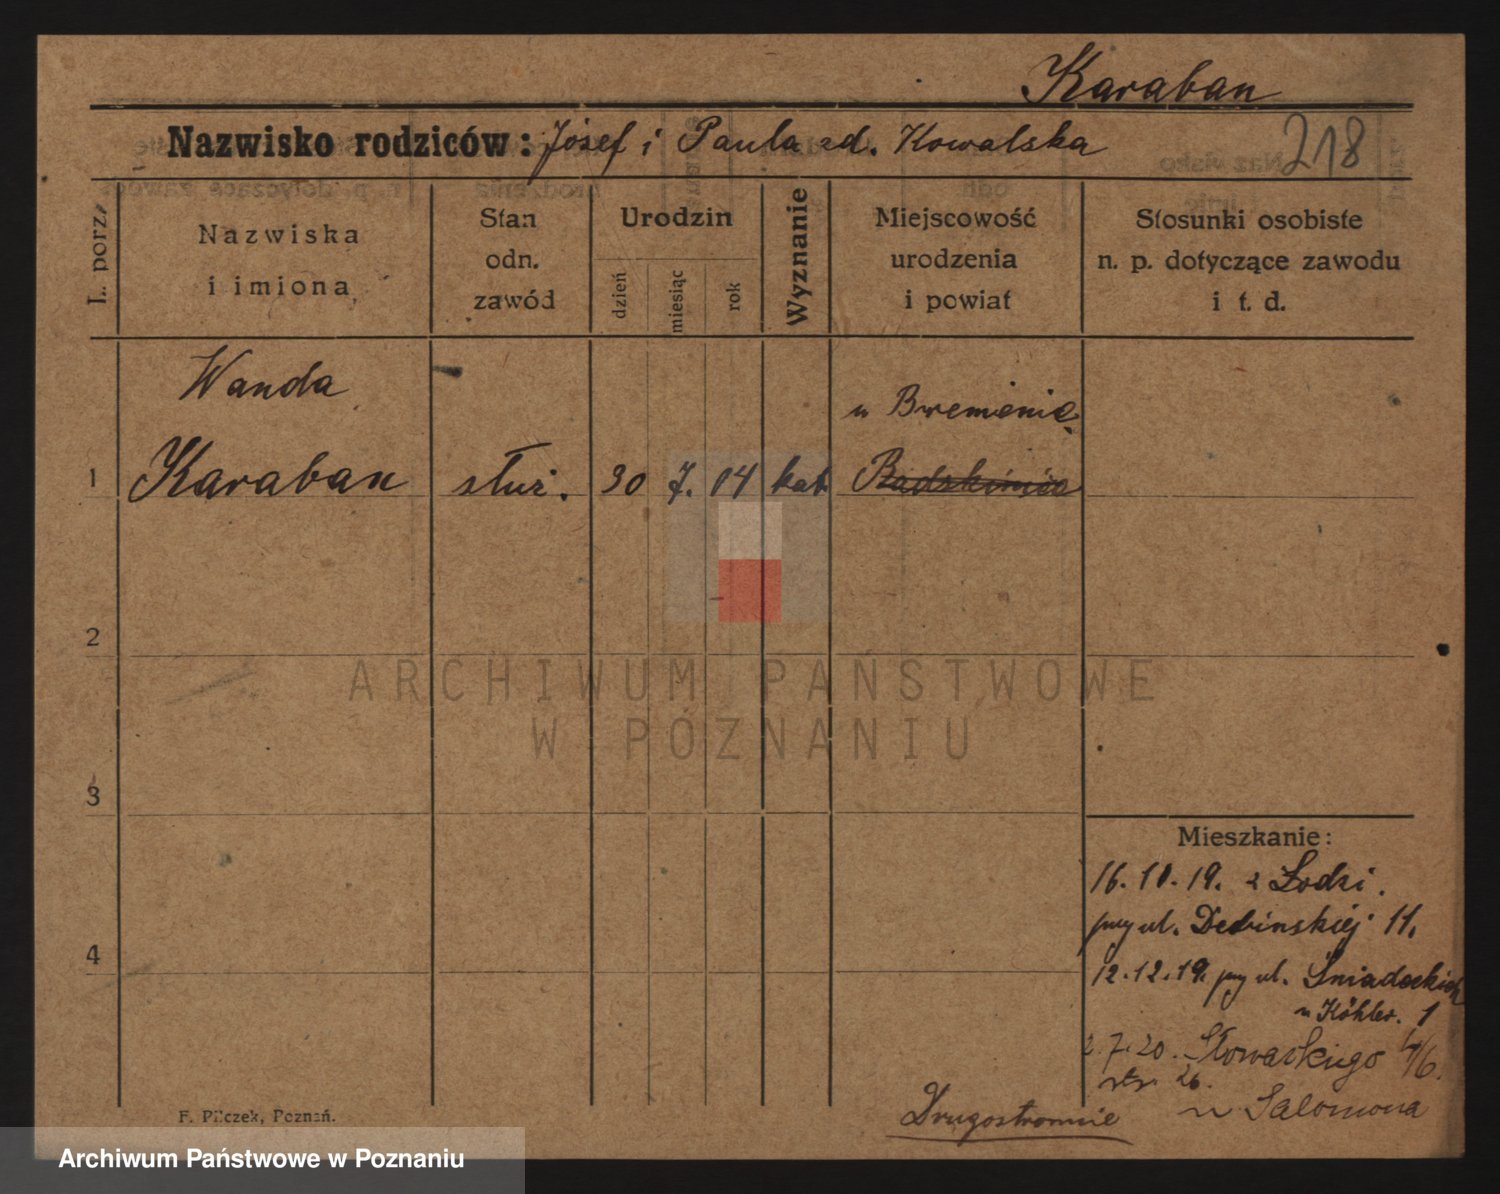 Karaban
Nazwisko rodziców: Józef i Paula zd. Kowalska
218
L. porz.
Nazwiska
i imiona
Stan
odn.
zawód
Urodzin
dzień
miesiąc
rok
Wyznanie
Miejscowość
urodzenia
i powiat
Stosunki osobiste
n. p. dotyczące zawodu
i t. d.
Wanda
w Bremenie
1 Karaban służ. 30 7. 14 kat.
2
3
4
Mieszkanie:
16.10.19. z Łodzi.
przy ul. Debinskiej 11.
12.12.19. przy ul. Śniadeckich
u Köhler. 1
2.7.20. Słowackiego
26.
u Salomona
Drugostronnie
F. Pilczek, Poznań.
ARCHIWUM PAŃSTWOWE
W POZNANIU
Archiwum Państwowe w Poznaniu